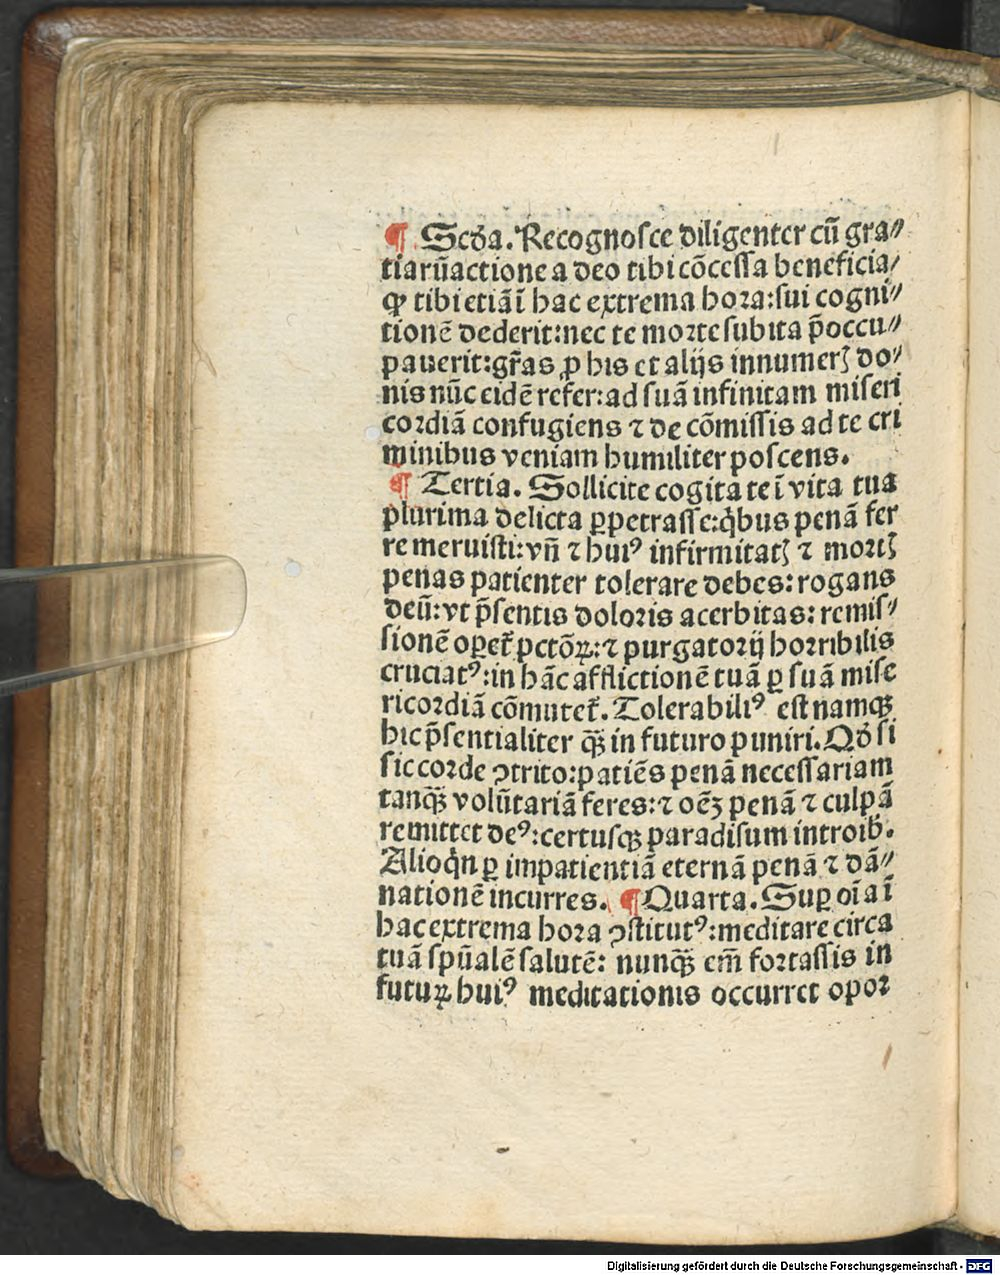 ¶ Scďa. Recognosce diligenter cū gra⸗
tiarūactione a deo tibi cōcessa beneficia⸗
ꝙ tibi etiāī hac extrema hoꝛa:sui cogni⸗
tionē dederit:nec te moꝛte subita p̄occu⸗
pauerit:gr̄as ꝓ his et alijs innumerꝫ do⸗
nis nūc eidē refer:ad suā infinitam miseri
coꝛdiā confugiens ⁊ de cōmissis ad te cri
minibus veniam humiliter poscens.
¶ Tertia. Sollicite cogita te ī vita tua
plurima delicta ꝑpetrasse:q̇bus penā fer
re meruisti:vñ ⁊ huiꝰ infirmitatꝫ ⁊ moꝛtꝫ
penas patienter tolerare debes: rogans
deū: vt p̄sentis doloꝛis acerbitas: remis⸗
sionē oꝑet̄ pctōꝝ: ⁊ purgatoꝛij hoꝛribilis
cruciatꝰ:in hāc afflictionē tuā ꝑ suā mise
ricoꝛdiā cōmutet̄. Tolerabiliꝰ est namqꝫ
hic p̄sentialiter qꝫ̄ in futuro puniri. Qđ si
sic coꝛde ꝯtrito:patiēs penā necessariam
tanqꝫ̄ volūtariā feres: ⁊ oēꝫ penā ⁊ culpā
remittet deꝰ:certusqꝫ paradisum introib̄.
Alioq̇n ꝑ impatientiā eternā penā ⁊ dā⸗
nationē incurres. ¶ Quarta. Suꝑ oīa ī
hac extrema hoꝛa ꝯstitutꝰ:meditare circa
tuā spūalē salutē: nunqꝫ̄ em̄ foꝛtassis in
futuꝝ huiꝰ meditationis occurret opoꝛ
Digitalisierung gefördert durch die Deutsche Forschungsgemeinschaft - DFG